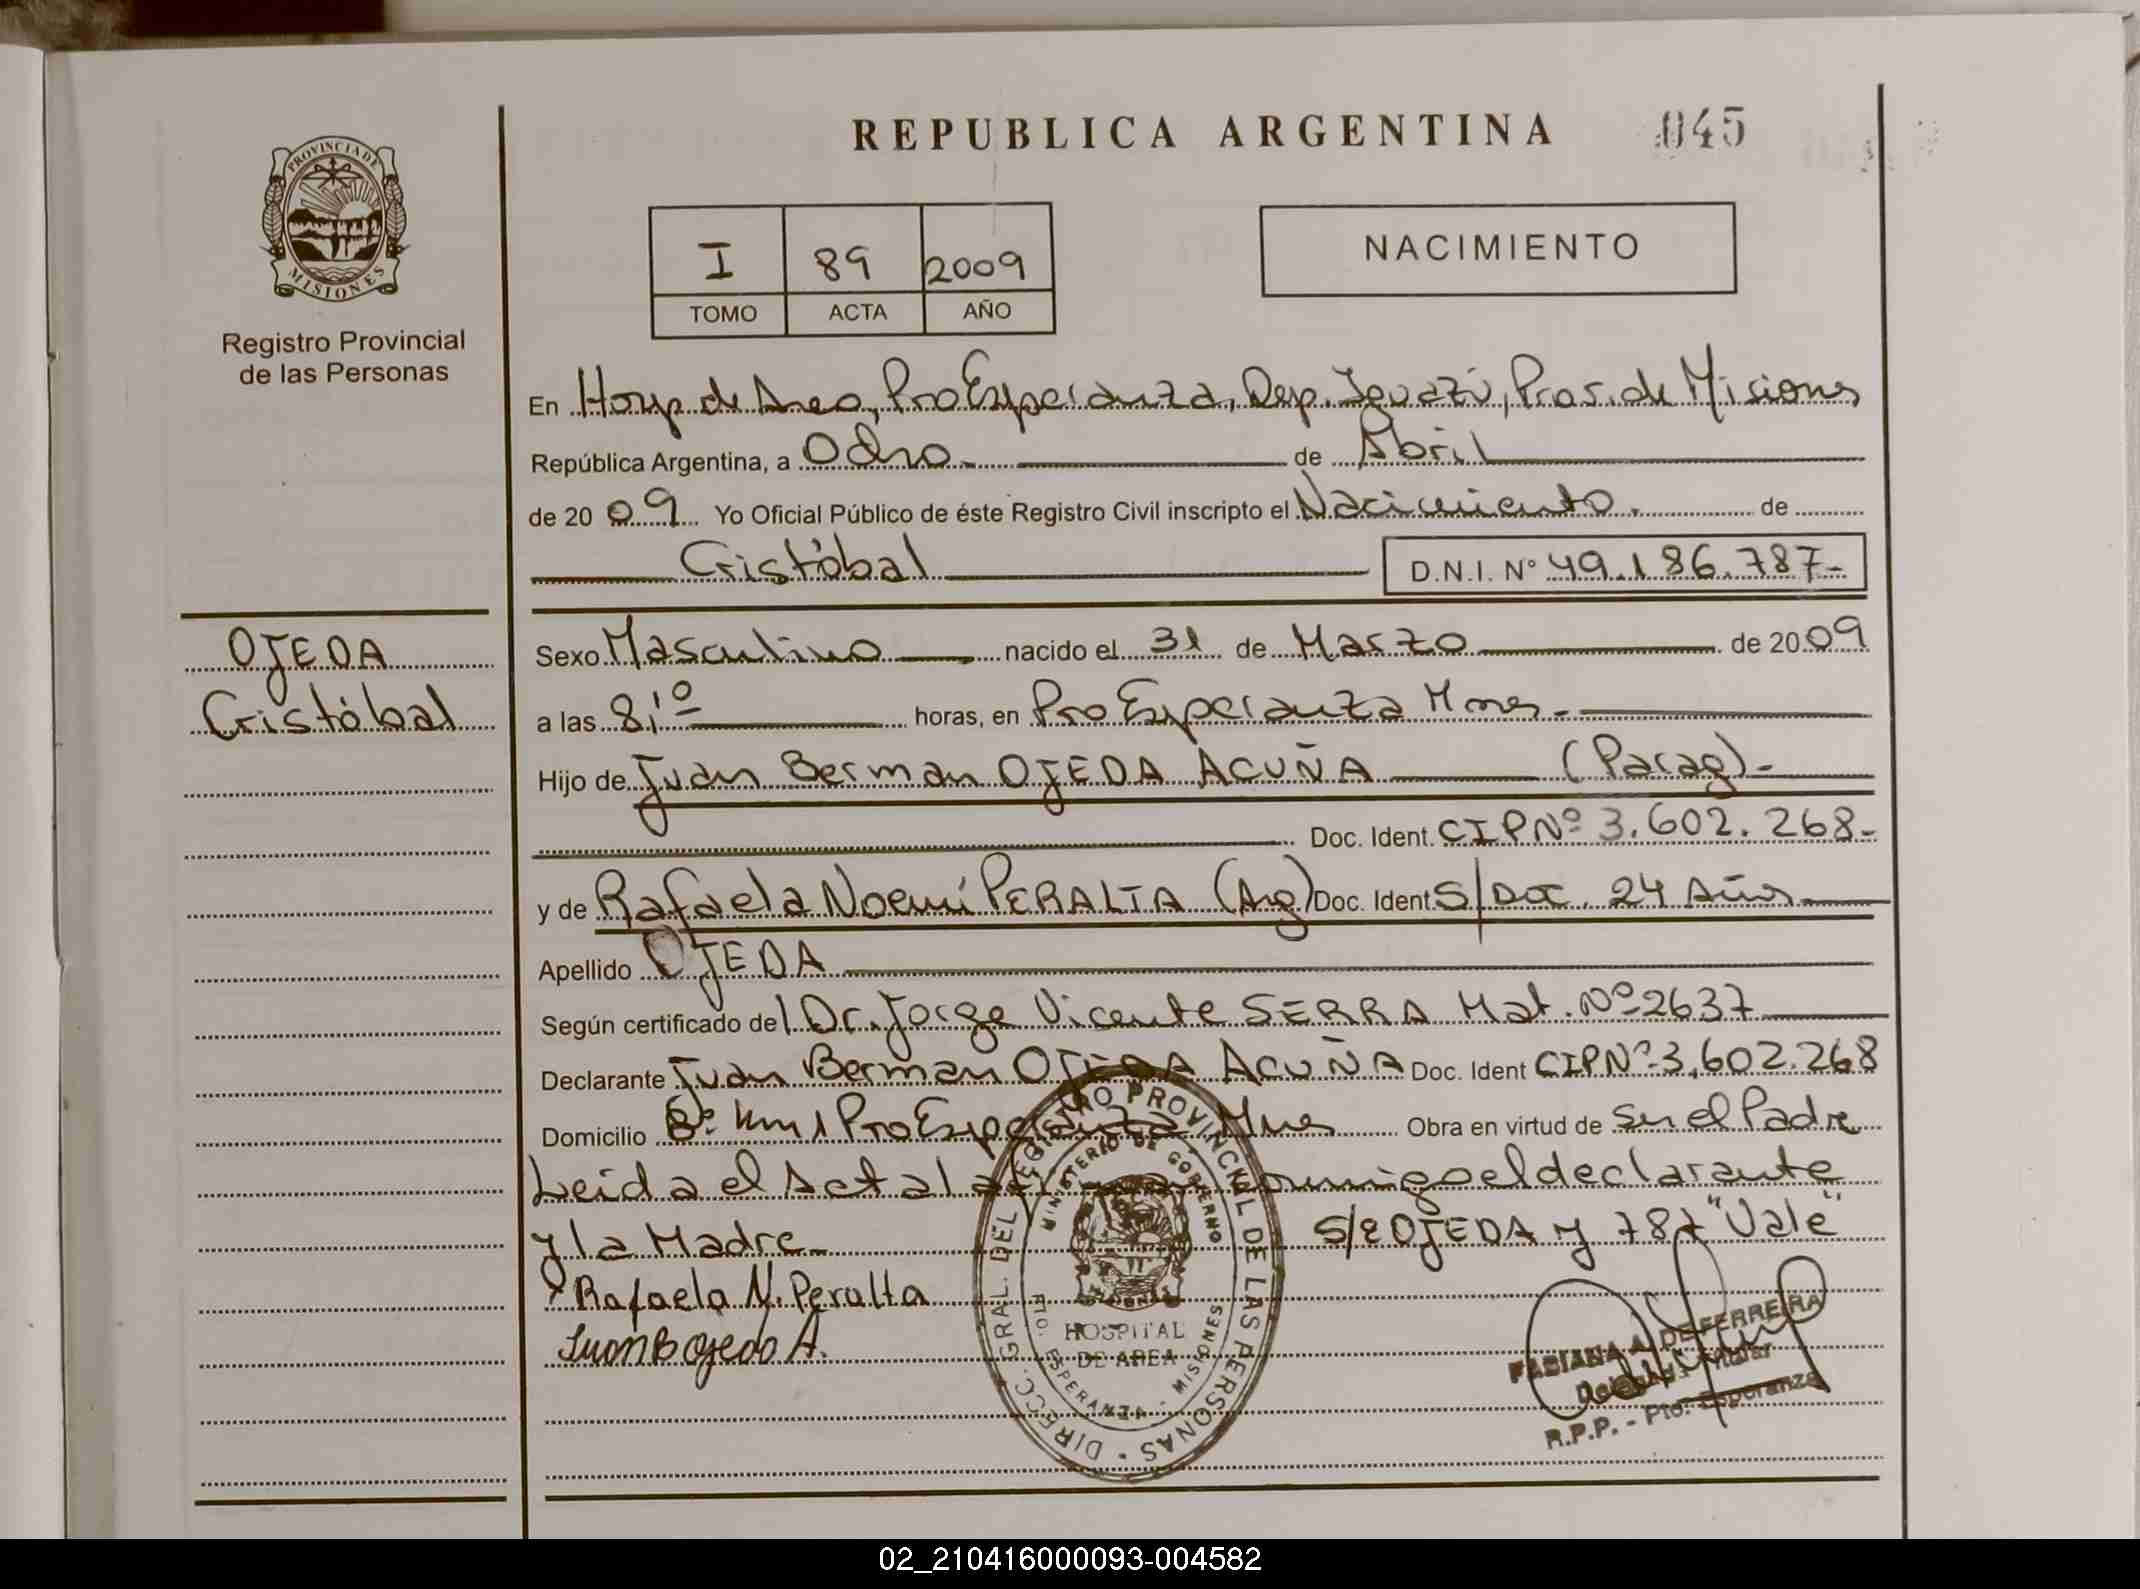 REPUBLICA ARGENTINA 045
PROVINCIA DE MISIONES
Registro Provincial
de las Personas
I 89 2009
TOMO ACTA AÑO
NACIMIENTO
En Hosp de Area, Pto Esperanza, Dep. Iguazú, Prov. de Misiones
República Argentina, a Ocho de Abril
de 20 09 Yo Oficial Público de éste Registro Civil inscripto el Nacimiento de
Cristóbal D.N.I. Nº 49.186.787-
OJEDA
Cristóbal
Sexo Masculino nacido el 31 de Marzo de 2009
a las 8,1º horas, en Pto Esperanza Mnes-
Hijo de Juan Berman OJEDA ACUÑA (Parag)-
Doc. Ident. CIPNº 3.602.268-
y de Rafaela Noemí PERALTA (Arg) Doc. Ident S/Doc. 24 Años
Apellido OJEDA
Según certificado del Dr. Jorge Vicente SERRA Mat. Nº 2637
Declarante Juan Berman OJEDA ACUÑA Doc. Ident CIPNº 3.602.268
Domicilio Bº km 1 Pto Esperanza Mnes Obra en virtud de ser el Padre
Leída el Acta la conmigo el declarante
y la Madre- S/e OJEDA y 787 "Vale"
Rafaela N. Peralta
Juan B Ojeda A.
DIRECC. GRAL. DEL REGISTRO PROVINCIAL DE LAS PERSONAS
MINISTERIO DE GOBERNO
HOSPITAL
DE AREA
PTO. ESPERANZA - MISIONES
FABIANA A. DE FERREIRA
Titular
R.P.P. - Pto. Esperanza
02_210416000093-004582